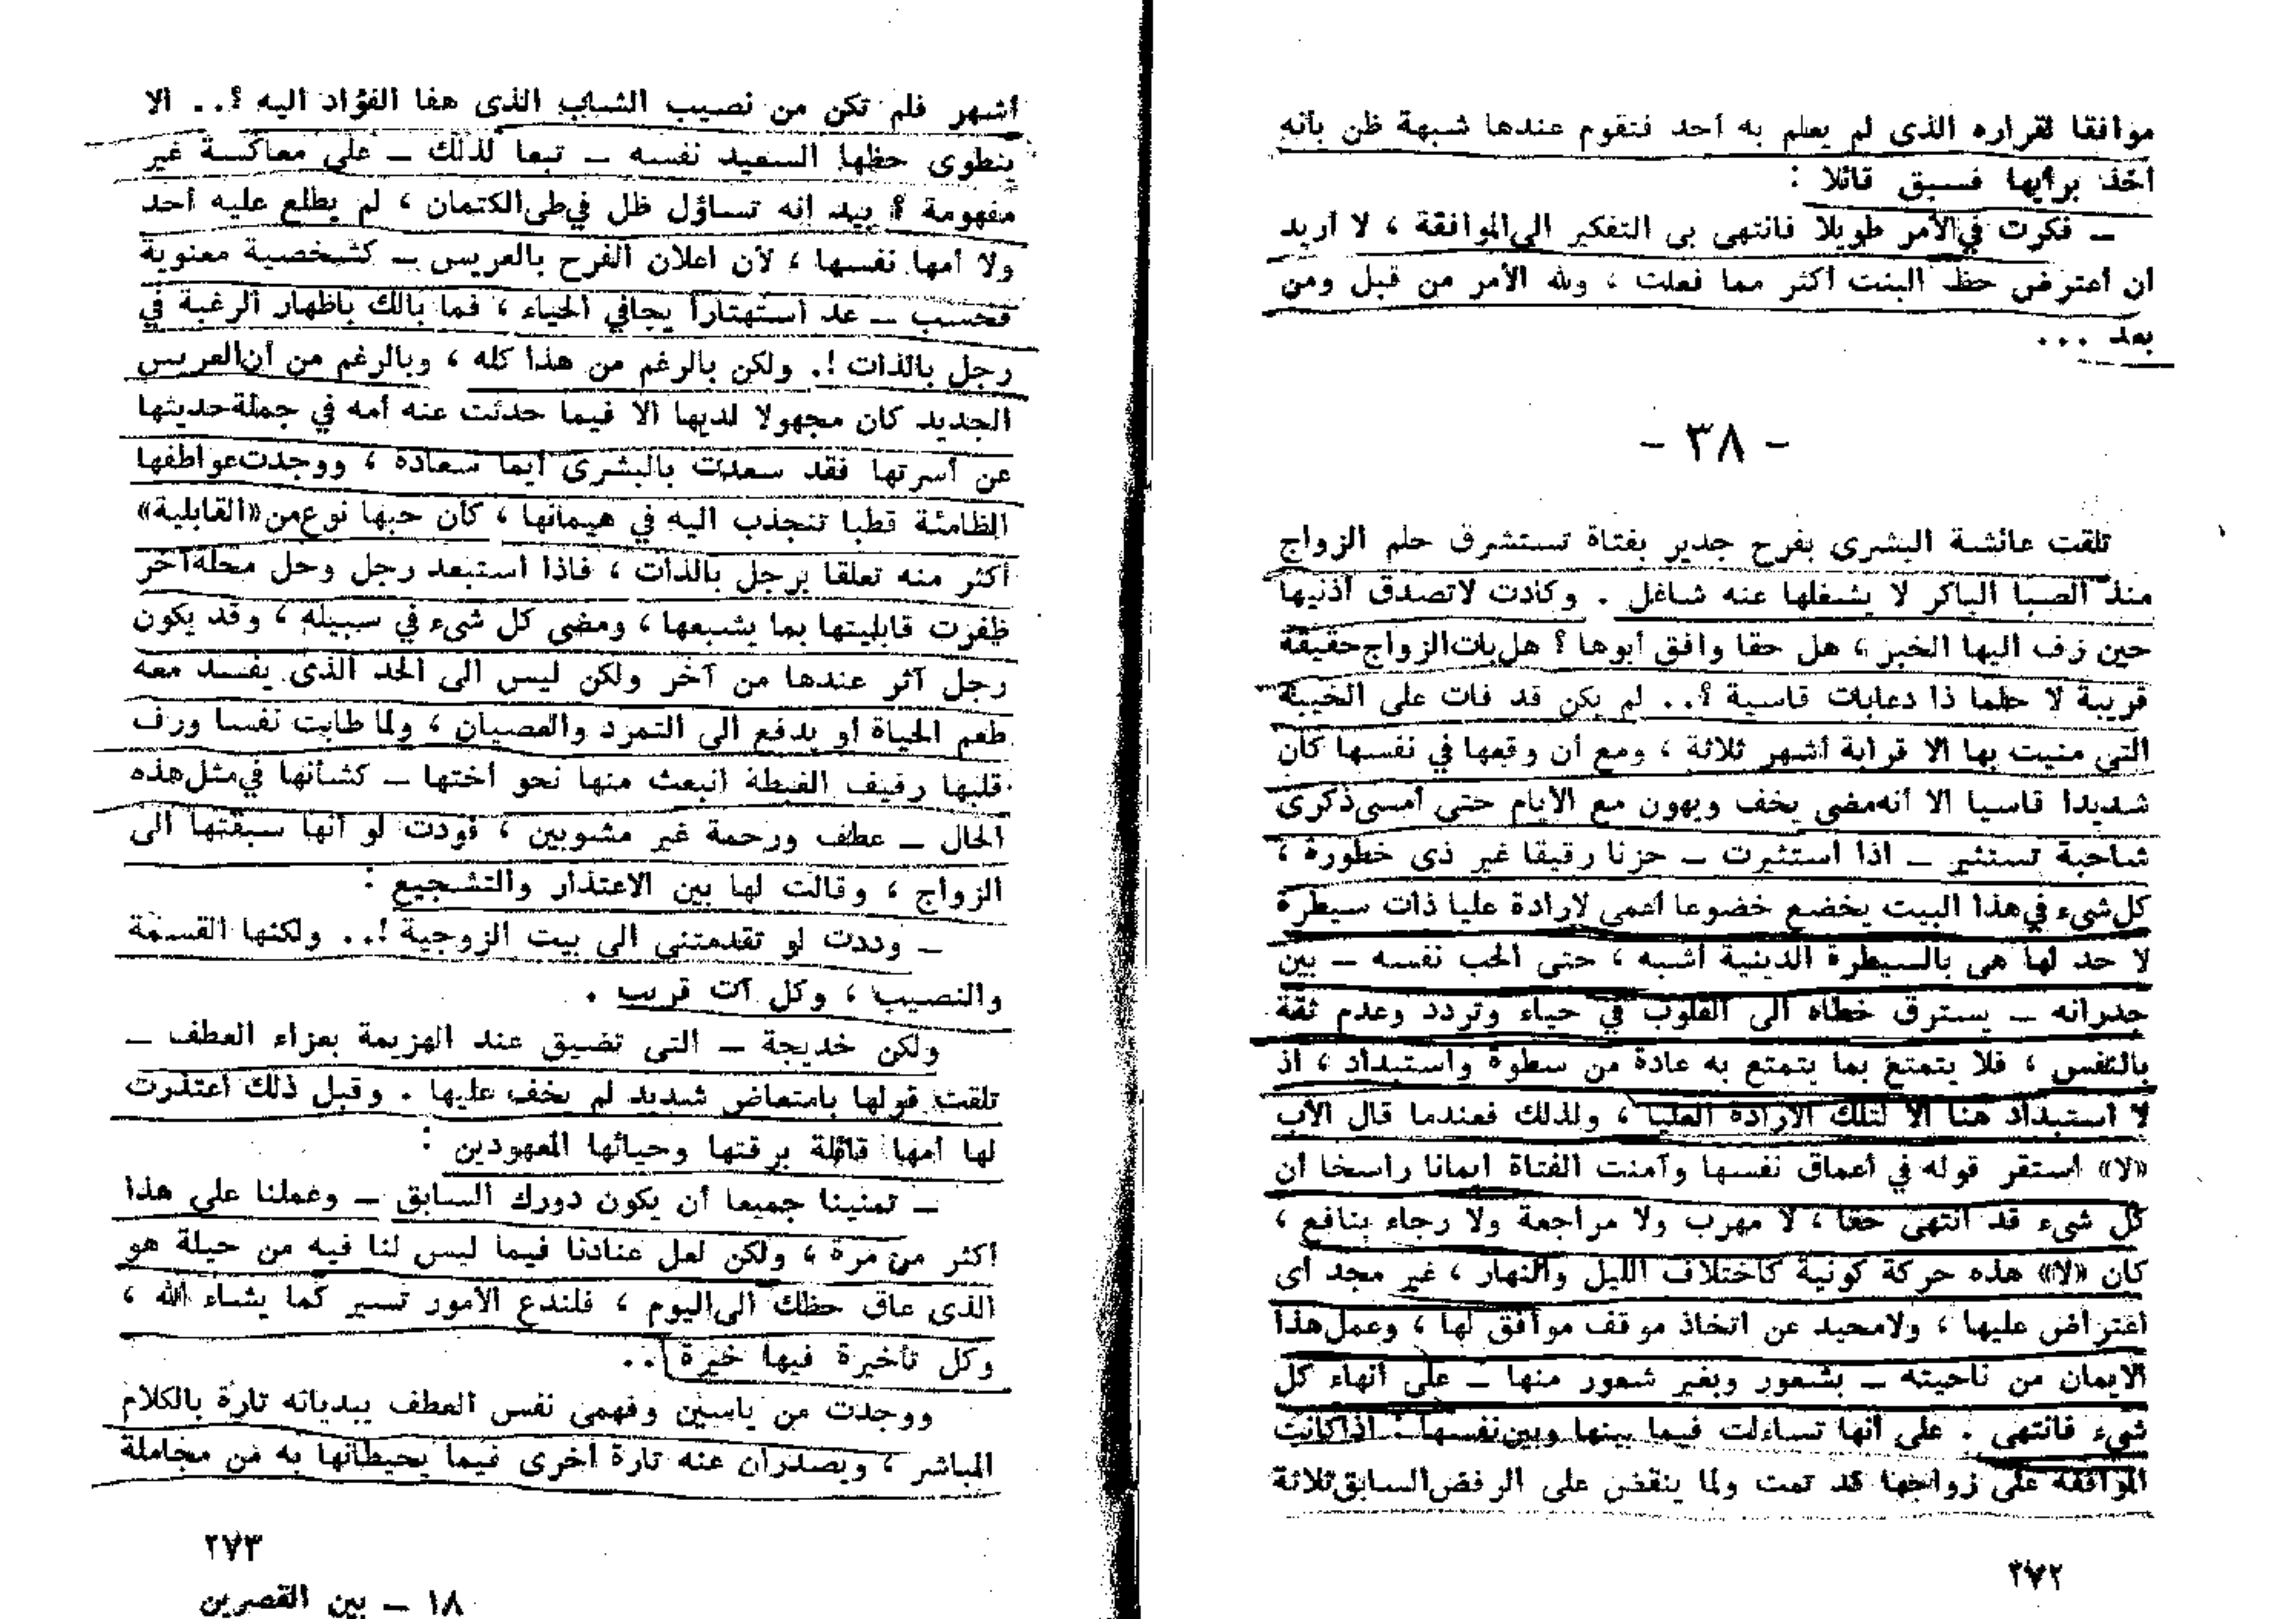 موافقا لقراره الذى لم يعلم به أحد فتقوم عندها شبهة ظن بأنه
أخذ برأيها فسبق قائلا :
ـ فكرت في الأمر طويلا فانتهى بى التفكير الى الموافقة ، لا أريد
أن أعترض حظ البنت أكثر مما فعلت ، ولله الأمر من قبل ومن
بعد ...
- ٣٨ -
تلقت عائشة البشرى بفرح جدير بفتاة تستشرف حلم الزواج
منذ الصبا الباكر لا يشغلها عنه شاغل . وكادت لا تصدق أذنيها
حين زف اليها الخبر ، هل حقا وافق أبوها ؟ هل بات الزواج حقيقة
قريبة لا حلما ذا دعابات قاسية ؟.. لم يكن قد فات على الخيبة
التي منيت بها الا قرابة أشهر ثلاثة ، ومع أن وقعها في نفسها كان
شديدا قاسيا الا أنه مضى يخف ويهون مع الأيام حتى أمسى ذكرى
شاحبة تستثير ـ اذا استثيرت ـ حزنا رقيقا غير ذى خطورة ،
كل شىء في هذا البيت يخضع خضوعا أعمى لارادة عليا ذات سيطرة
لا حد لها هى بالسيطرة الدينية أشبه ، حتى الحب نفسه ـ بين
جدرانه ـ يسترق خطاه الى القلوب في حياء وتردد وعدم ثقة
بالنفس ، فلا يتمتع بما يتمتع به عادة من سطوة واستبداد ، اذ
لا استبداد هنا الا لتلك الارادة العليا ، ولذلك فعندما قال الأب
«لا» استقر قوله في أعماق نفسها وآمنت الفتاة ايمانا راسخا أن
كل شىء قد انتهى حقا ، لا مهرب ولا مراجعة ولا رجاء بنافع ،
كأن «لا» هذه حركة كونية كاختلاف الليل والنهار ، غير مجد أى
اعتراض عليها ، ولا محيد عن اتخاذ موقف موافق لها ، وعمل هذا
الايمان من ناحيته ـ بشعور وبغير شعور منها ـ على انهاء كل
شىء فانتهى . على أنها تساءلت فيما بينها وبين نفسها : اذا كانت
الموافقة على زواجها قد تمت ولما ينقض على الرفض السابق ثلاثة
٢٧٢
أشهر فلم تكن من نصيب الشاب الذى هفا الفؤاد اليه ؟.. ألا
ينطوى حظها السعيد نفسه ـ تبعا لذلك ـ على معاكسة غير
مفهومة ؟ بيد انه تساؤل ظل في طى الكتمان ، لم يطلع عليه أحد
ولا أمها نفسها ، لأن اعلان الفرح بالعريس ـ كشخصية معنوية
فحسب ـ عد استهتارا يجافي الحياء ، فما بالك باظهار الرغبة في
رجل بالذات !. ولكن بالرغم من هذا كله ، وبالرغم من أن العريس
الجديد كان مجهولا لديها الا فيما حدثت عنه أمه في جملة حديثها
عن أسرتها فقد سعدت بالبشرى أيما سعادة ، ووجدت عواطفها
الظامئة قطبا تنجذب اليه في هيمانها ، كأن حبها نوع من «القابلية»
أكثر منه تعلقا برجل بالذات ، فاذا استبعد رجل وحل محله آخر
ظفرت قابليتها بما يشبعها ، ومضى كل شىء في سبيله ، وقد يكون
رجل آثر عندها من آخر ولكن ليس الى الحد الذى يفسد معه
طعم الحياة أو يدفع الى التمرد والعصيان ، ولما طابت نفسا ورف
قلبها رفيف الغبطة انبعث منها نحو أختها ـ كشأنها في مثل هذه
الحال ـ عطف ورحمة غير مشوبين ، فودت لو أنها سبقتها الى
الزواج ، وقالت لها بين الاعتذار والتشجيع :
ـ وددت لو تقدمتنى الى بيت الزوجية !.. ولكنها القسمة
والنصيب ، وكل آت قريب .
ولكن خديجة ـ التى تضيق عند الهزيمة بعزاء العطف ـ
تلقت قولها بامتعاض شديد لم يخف عليها . وقبل ذلك اعتذرت
لها أمها قائلة برقتها وحيائها المعهودين :
ـ تمنينا جميعا أن يكون دورك السابق ـ وعملنا على هذا
أكثر من مرة ، ولكن لعل عنادنا فيما ليس لنا فيه من حيلة هو
الذى عاق حظك الى اليوم ، فلندع الأمور تسير كما يشاء الله ،
وكل تأخيرة فيها خيرة ..
ووجدت من ياسين وفهمى نفس العطف يبديانه تارة بالكلام
المباشر ، ويصدران عنه تارة أخرى فيما يحيطانها به من مجاملة
٢٧٣
١٨ ـ بين القصرين